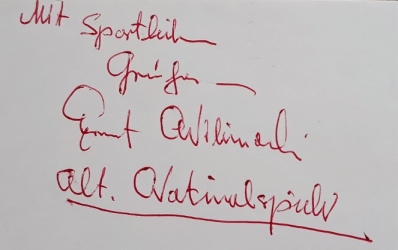 Mit Sportlichen
Grüßen
Ernst Willimowski
Alt. Nationalspieler